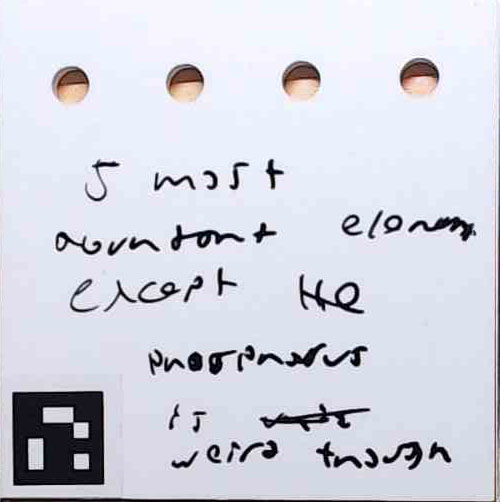 5 most
abundant elements
except He
phosphorus
is
weird though